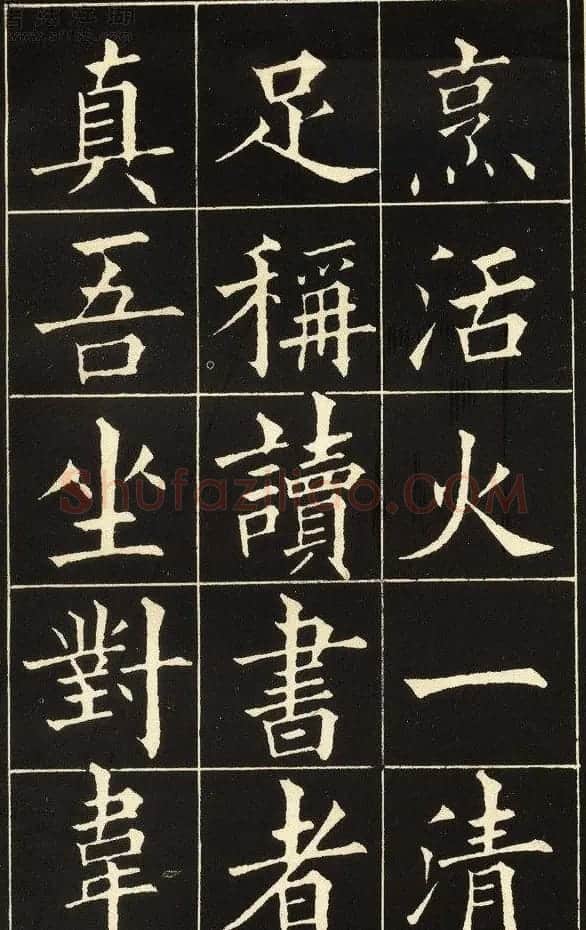 烹活火一清
足稱讀書者
真吾坐對韋
ShufaZiliao.COM